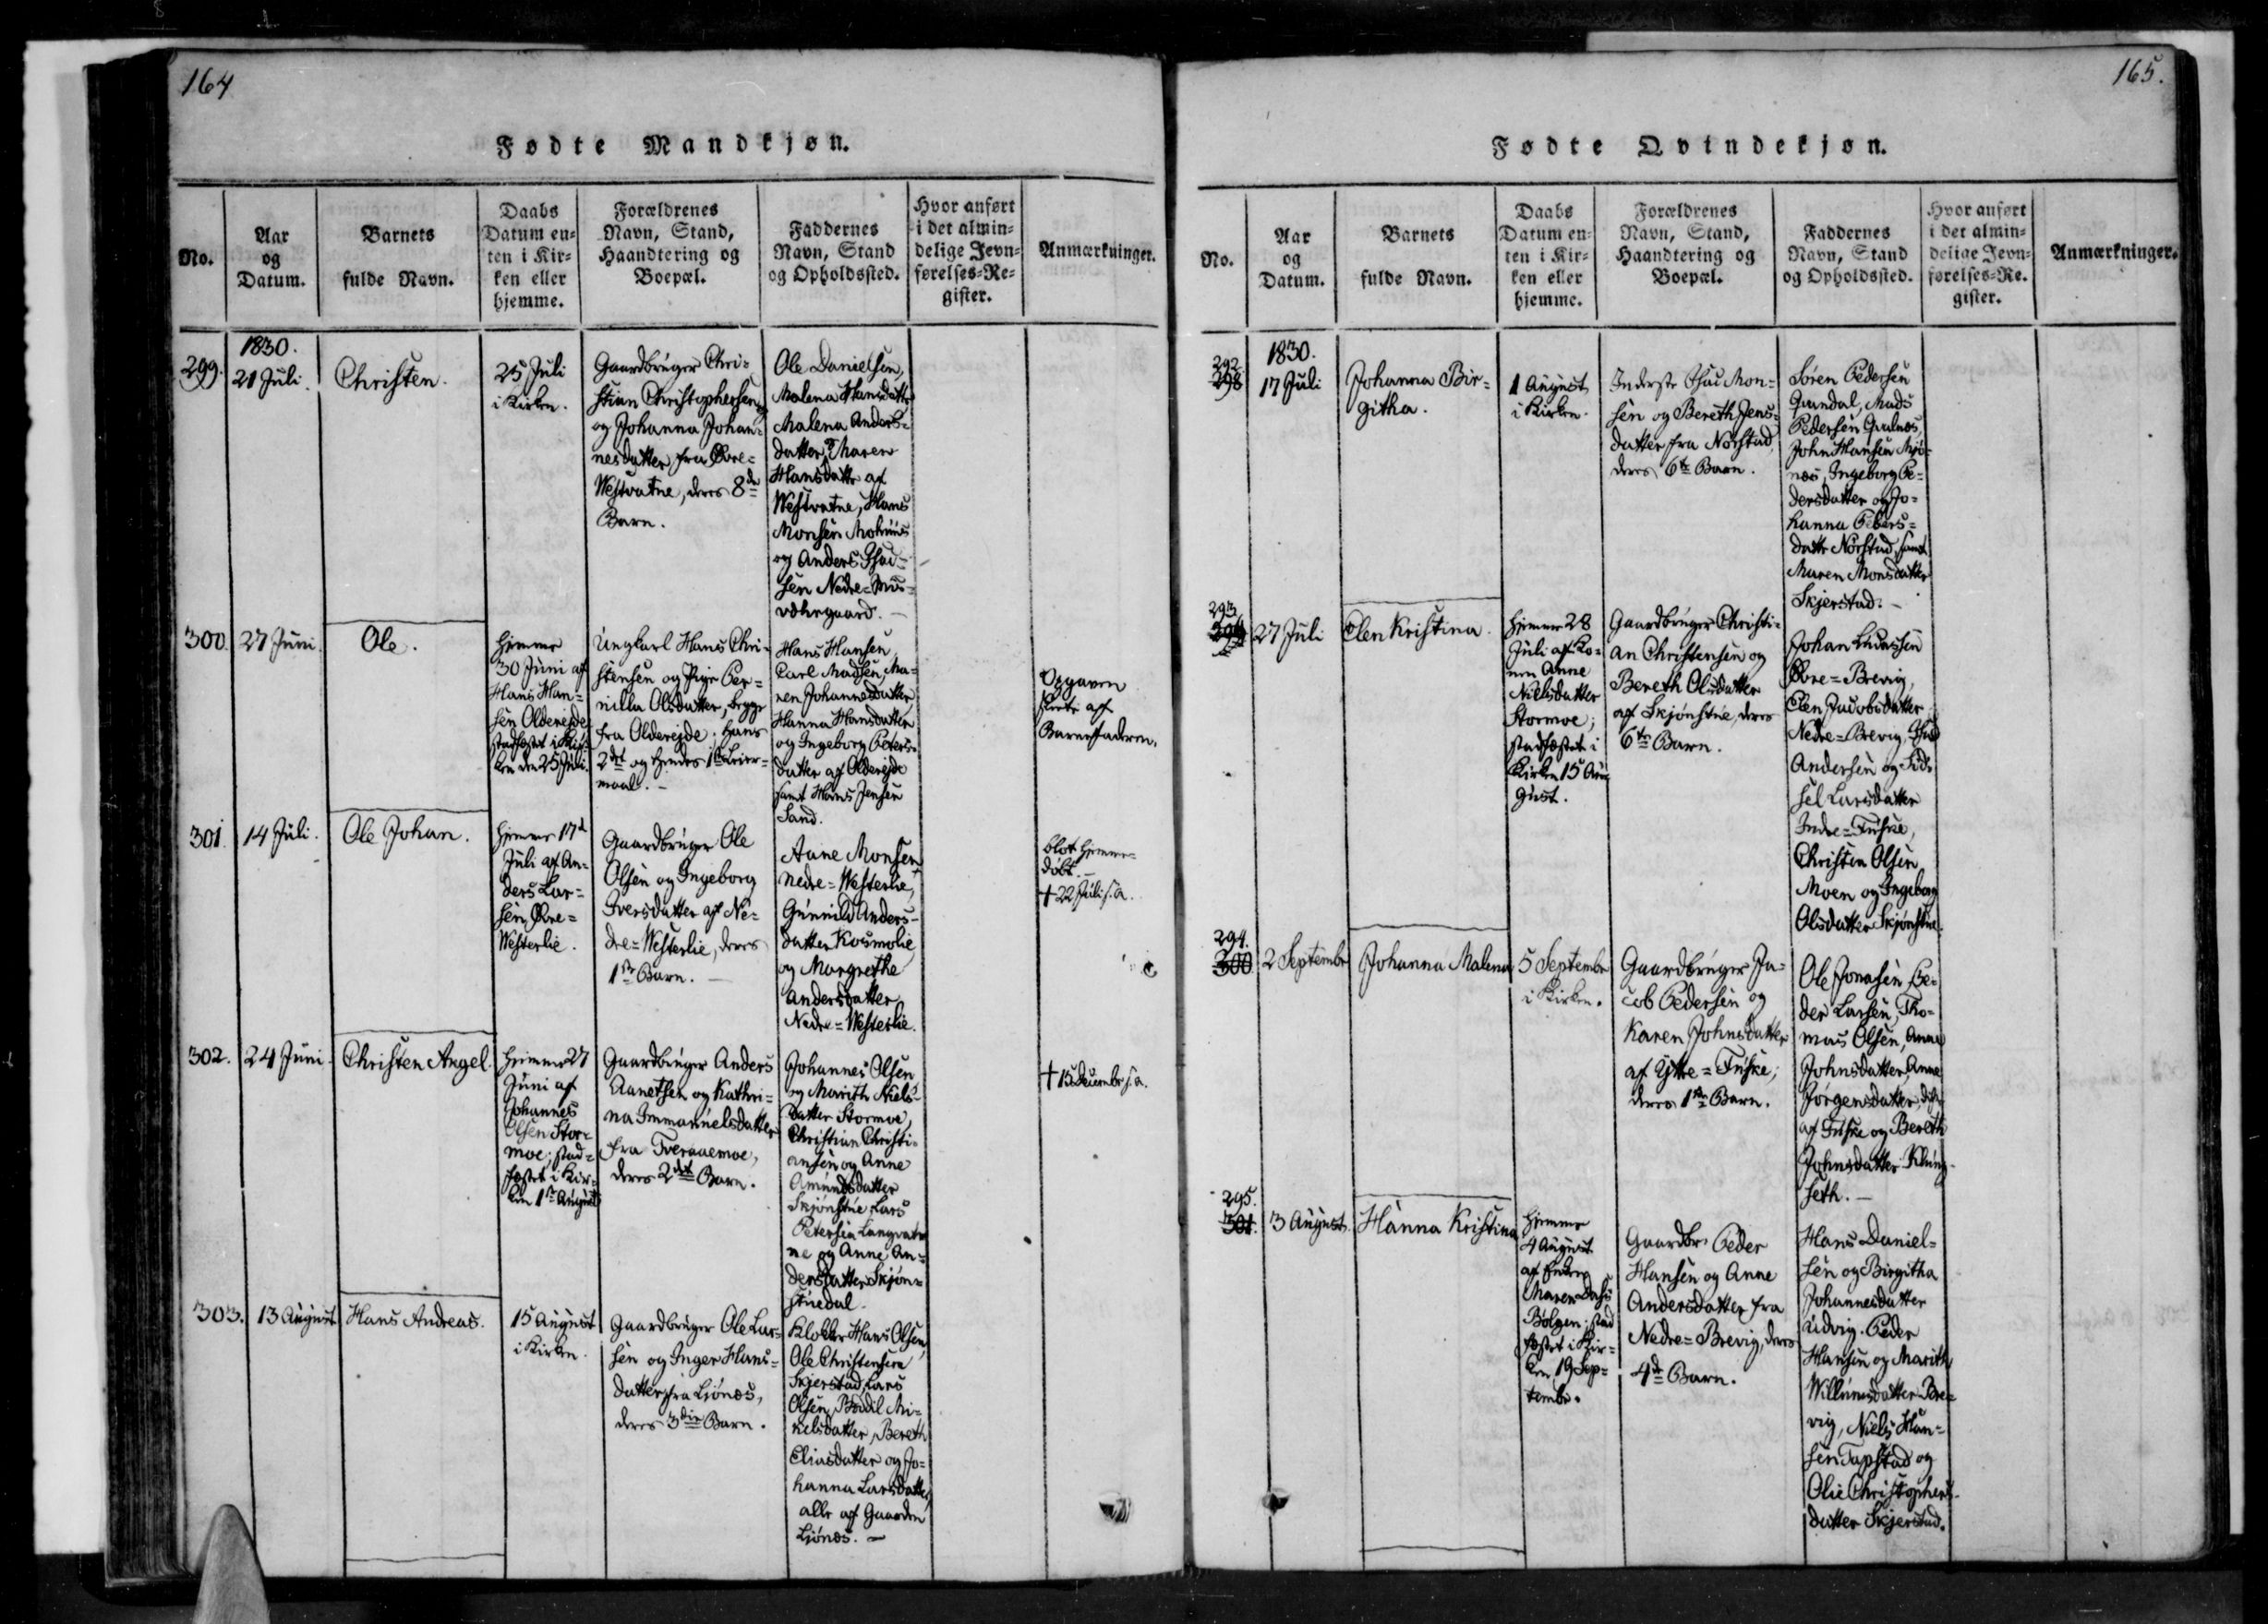 164
Fødte Mandkjøn.
No.
Aar
og
Datum.
Barnets
fulde Navn.
Daabs
Datum en-
ten i Kir-
ken eller
hjemme.
Forældrenes
Navn, Stand,
Haandtering og
Boepæl.
Faddernes
Navn, Stand
og Opholdssted.
Hvor anført
i det almin-
delige Jevn-
førelses-Re-
gister.
Anmærkninger.
1830.
299.
21 Juli.
Christen.
25 Juli
i Kirken.
Gaardbruger Chri-
stian Christophersen
og Johanna Johan-
nesdatter fra Øvre-
Westvatne, deres 8de
Barn.
Ole Danielsen,
Malena Hansdatter
Malena Anders-
datter, Maren
Hansdatter af
Westvatne, Hans
Monsen
og Anders Isac-
sen Nedre-
300.
27 Juni.
Ole.
hjemme
30 Juni af
Hans Han-
sen Oldereide
stadfæstet i Kir-
ken den 25 Juli.
Ungkarl Hans Chri-
stensen og Pige Per-
nilla Olsdatter, begge
fra Oldereide; hans
2det og hendes 1ste Leier-
maal. -
Hans Hansen,
Carl Madsen, Ma-
ren Johannesdatter,
Hanna Hansdatter
og Ingeborg Peders-
datter af Oldereide
samt Hans Jensen
Sand.
Opgaven
skrevet af
Barnefaderen.
301.
14 Juli.
Ole Johan.
hjemme 17de
Juli af An-
ders Lar-
sen Øvre-
Westerlie.
Gaardbruger Ole
Olsen og Ingeborg
Iversdatter af Ne-
dre-Westerlie, deres
1ste Barn. -
Aane Monsen
Nedre-Westerlie,
Gunnild Anders-
datter Kosmolie
og Margrethe
Andersdatter
Nedre-Westerlie.
blot hjemme-
døbt. -
† 22 Juli s. a.
302.
24 Juni.
Christen Angel.
hjemme 27
Juni af
Johannes
Olsen Stor-
moe; stad-
fæstet i Kir-
ken 1ste August
Gaardbruger Anders
Aanetsen og Kathri-
na Immanuelsdatter
fra Tveraaemoe,
deres 2det Barn.
Johannes Olsen
og Marith Niels-
datter Stormoe,
Christian Christi-
ansen og Anne
Amundsdatter
Skjønstue, Lars
Petersen Langvat-
ne og Anne An-
dersdatter Skjøn-
stuedal.
† 15 Decembr s. a.
303.
13 August
Hans Andreas.
15 August
i Kirken.
Gaardbruger Ole Lar-
sen og Inger Hans-
datter fra Liønæs,
deres 3die Barn.
Klokker Hans Olsen,
Ole Christensen
Skjerstad, Lars
Olsen, Bodil Mi-
kelsdatter, Bereth
Eliasdatter og Jo-
hanna Larsdatter,
alle af Gaarden
Liønæs. -
165.
Fødte Qvindekjøn.
No.
Aar
og
Datum.
Barnets
fulde Navn.
Daabs
Datum en-
ten i Kir-
ken eller
hjemme.
Forældrenes
Navn, Stand,
Haandtering og
Boepæl.
Faddernes
Navn, Stand
og Opholdssted.
Hvor anført
i det almin-
delige Jevn-
førelses-Re-
gister.
Anmærkninger.
1830.
292.
298
17 Juli
Johanna Bir-
githa.
1 August
i Kirken.
Inderste Isac Mon-
sen og Bereth Jens-
datter fra Nørstad,
deres 6te Barn.
Søren Pedersen
Grandal, Mads
Pedersen
John Hansen Mjø-
næs, Ingeborg Pe-
dersdatter og Jo-
hanna Peders-
datter Nørstad, samt
Maren Monsdatter
Skjerstad. -
293.
299
27 Juli
Elen Kristina.
hjemme 28
Juli af Ko-
nen Anne
Nielsdatter
Stormoe;
stadfæstet i
Kirken 15 Au-
gust.
Gaardbruger Christi-
an Christensen og
Bereth Olsdatter
af Skjønstue, deres
6te Barn.
Johan Lucassen
Øvre-Brevig,
Elen Jacobsdatter
Nedre-Brevig, Isac
Andersen og Sid-
sel Larsdatter
Indre-Fuske,
Christen Olsen
Moen og Ingeborg
Olsdatter Skjønstue.
294.
300
2 Septembr
Johanna Malena
5 Septembr
i Kirken.
Gaardbruger Ja-
cob Pedersen og
Karen Johnsdatter
af Yttre-Fuske;
deres 1ste Barn.
Ole Jonasen, Pe-
der Larsen, Tho-
mas Olsen, Anne
Johnsdatter, Anne
Jørgensdatter,
af Fuske og Bereth
Johnsdatter Klung-
seth. -
295.
301.
3 August.
Hanna Kristina
hjemme
4 August
af Enken
Maren Dahs
Bølgen; stad
fæstet i Kir-
ken 19 Sep-
tembr.
Gaardbr. Peder
Hansen og Anne
Andersdatter fra
Nedre-Brevig, deres
4de Barn.
Hans Daniel-
sen og Birgitha
Johannesdatter
Udvig. Peder
Hansen og Marith
Willumsdatter Bre-
vig, Niels Han-
sen Tapstad og
Olie Christophers-
datter Skjerstad.